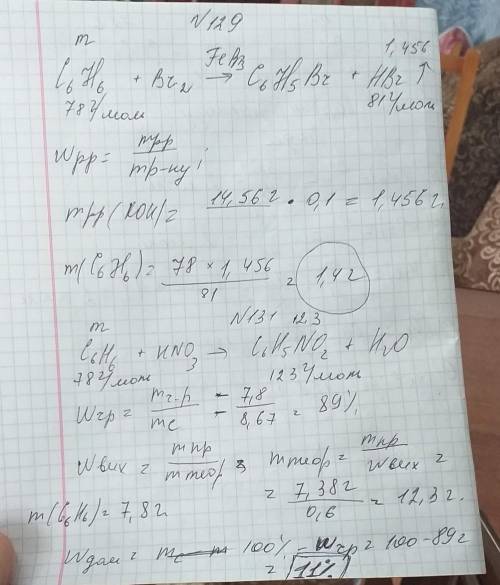 №129
m 1,456
C6H6 + Br2 FeBr3 → C6H5Br + HBr ↑
78 г/мол 81 г/мол
Wрр = mрр / mр-ну ;
mрр (KOH) = 14,56 г • 0,1 = 1,456 г.
m(C6H6) = 78 × 1,456 / 81 = 1,4 г
№131 12,3
m
C6H6 + HNO3 → C6H5NO2 + H2O
78 г/мол 123 г/мол
Wчр = mч.р / mс = 7,8 / 8,67 = 89%
Wвих = mпр / mтеор ; mтеор = mпр / Wвих =
= 7,38 г / 0,6 = 12,3 г.
m(C6H6) = 7,8 г
Wдом = 100% - Wчр = 100 - 89 =
= 11%